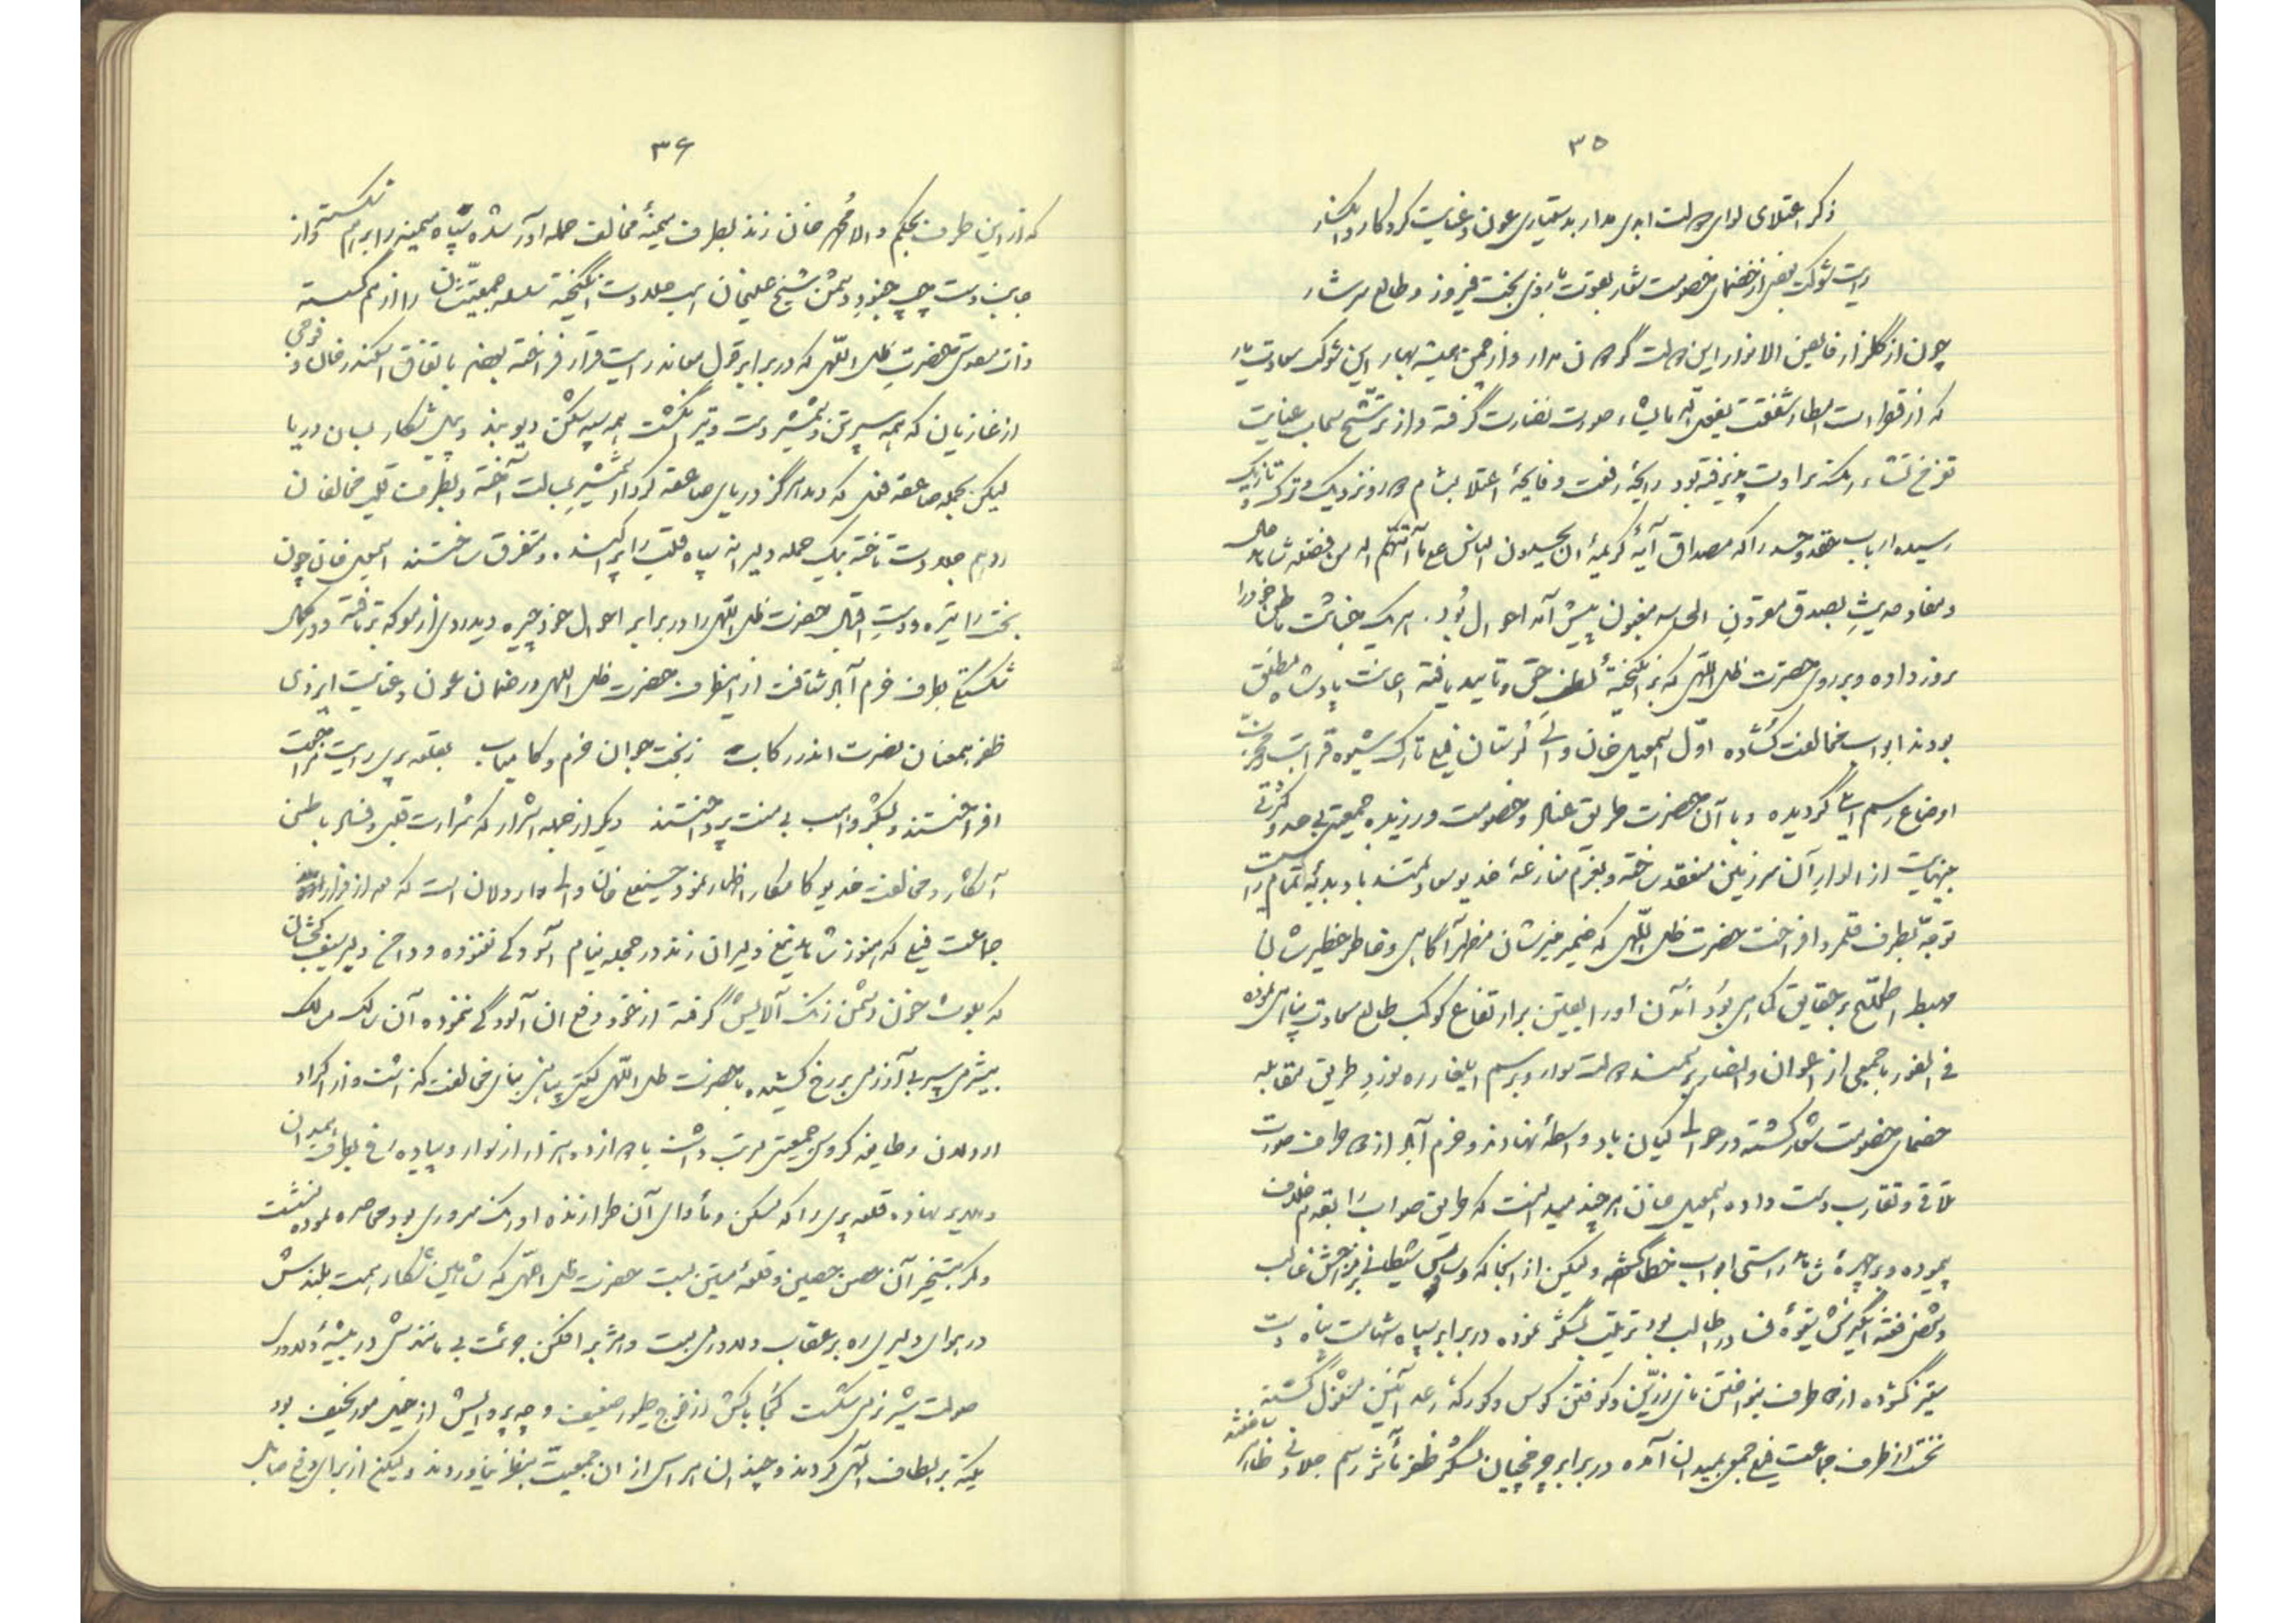 ۳۵
ذکر اعتلای لوای دولت ابدی مدار بدستیاری عون و عنایت کردگار و انکسار
رایت شوکت بعضی از خصمای خصومت شعار بقوت بازوی بخت فیروز و طالع سرشار
چون از گلزار فایض الانوار این دولت گردون مدار و از چمن همیشه بهار این شوکت سعادت یار
که از قطرات امطار شفقت یفعل الله مایشاء صورت نضارت گرفته و از ترشح سحاب عنایت
تعز من تشاء رنگ طراوت پذیرفته بود رایحهٔ رفعت و فایحهٔ اعتلا بمشام دور و نزدیک و ترک و تازیک
رسیده ارباب حقد و حسد را که مصداق آیهٔ کریمهٔ ان یحسدون الناس علی ما آتیهم الله من فضله شامل حال
و مفاد حدیث بصدق مقرون الحاسد مغبون پیش آمد احوال بود. هر یک خباثت باطنی خود را
بروز داده و بر روی حضرت ظل اللهی که برانگیختهٔ لطف حق و تایید یافته اعانت پادشاه مطلق
بودند ابواب مخالفت گشاده اول اسمعیل خان والی لرستان فیلی تارک شیوه قرابت و مجرب
اوضاع رسم گردیده و با آن حضرت طریق عناد و خصومت ورزیده جمعیتی بی حد و کثرتی
بینهایت از الوار آن سرزمین منعقد ساخته و بعزم منازعهٔ خدیو سعادتمند با دبدبهٔ تمام رایت
توجه بطرف قلمرو افراخت حضرت ظل اللهی که ضمیر منیرشان مظهر آگاهی و خاطر خطیرشان
مهبط اطلاع بر حقایق کماهی بود آمدن او را یقین بر ارتفاع کوکب طالع سعادت پناهی نموده
فی الفور با جمعی از اعوان و انصار بر سمند دولت سوار و برسم ایلغار ره نورد طریق مقابله
خصمای خصومت شعار گشته در حوالی کیان باد واسطهٔ نهاوند و خرم آباد از دو طرف صورت
تلاقی و تقارب دست داده اسمعیل خان هر چند میدانست که طریق صواب را بقدم خلاف
پیموده و بر چهرهٔ شاهد راستی ابواب خطا گشوده ولیکن از آنجا که وساوس شیطانی بر مزاجش غالب
و نفس فتنه انگیزش بقوهٔ فساد را طالب بود ترتیب لشگر نموده در برابر سپاه شهامت پناه دست
بستیز گشوده از دو طرف بنواختن نای زرین و کوفتن کوس و کورکهٔ رعد آئین مشغول گشتند
نخست از طرف جماعت فیلی جمعی بمیدان آمده در برابر چرخچیان لشگر ظفر مأثر رسم جلادتی ظاهر ساختند
۳۶
که از این طرف بحکم والا محمد خان زند بطرف میمنهٔ مخالف حمله آور شده سپاه میمنه را برهم شکست و از
جانب دست چپ جنود دشمن شیخ علیخان اسب جلادت انگیخته سلسله جمعیتشان را از هم گسسته
ذات مقدس حضرت ظل اللهی که در برابر قول معاند رایت قرار افراخته بودند باتفاق اسکندر خان و فوجی
از غازیان که همه سپر تن و شمشیر دست و تیر انگشت همه سپه شکن دیو بند و پیل شکار بسان دریا
لیکن بحمله صاعقه فعل که دیده هرگز دریای صاعقه کردار شمشیر بسالت آخته و بطرف قلب مخالفان
ادهم جلادت تاخته بیک حمله دلیرانه سپاه قلب را پراکنده و متفرق ساختند اسمعیل خان چون
بخت را تیره و دست اقبال حضرت ظل اللهی را در برابر احوال خود چیره دید روی از معرکه برتافته و در کمال
شکستگی بطرف خرم آباد شتافت از اینطرف حضرت ظل اللهی در ضمان عون و عنایت ایزدی
ظفر همعنان نصرت اندر رکاب ز بخت جوان خرم و کامیاب بقلعه پری رایت مراجعت
افراختند و بشکر واهب بی منت پرداختند دیگر از جمله اشرار که شرارت قلبی و فساد باطنی
آشکار و مخالفت خدیو کامکار اظهار نمود حسنعلی خان والی اردلان است که بعد از فرار
جماعت فیلی که هنوز شاهد تیغ دلیران زند در حجله نیام آسودگی نغنوده و دامن دلبر سیف کجشان
که بلوث خون دشمن رنگ آلایش گرفته از خود رفع آن آلودگی ننموده آن سالک مسالک
بیشرمی سپر بی آزرمی بر رخ کشیده با حضرت ظل اللهی بنای مخالفت گذاشت و از اکراد
اردلان و طایفه کروس جمعیتی مرتب داشت با دوازده هزار از سوار و پیاده رخ بطرف میدان
دلیری نهاده قلعه پری را که مسکن و مأوای آن طرازنده اورنگ سروری بود محاصره نموده نشست
و کمر بتسخیر آن حصن حصین و قلعهٔ متین بست حضرت ظل اللهی که شاهین شکار همت بلندش
در هوای دلیری ره بر عقاب دلاوری بست و هژبر افکن جرئت بی مانندش در بیشهٔ دلاوری
صولت شیر نر می شکست کجا باکش از فوج طیور ضعیف و چه پروایش از خیل مور نحیف بود
تکیه بر الطاف الهی کردند و چندان هراسی از ان جمعیت بنظر نیاوردند ولیکن از برای رفع حایل